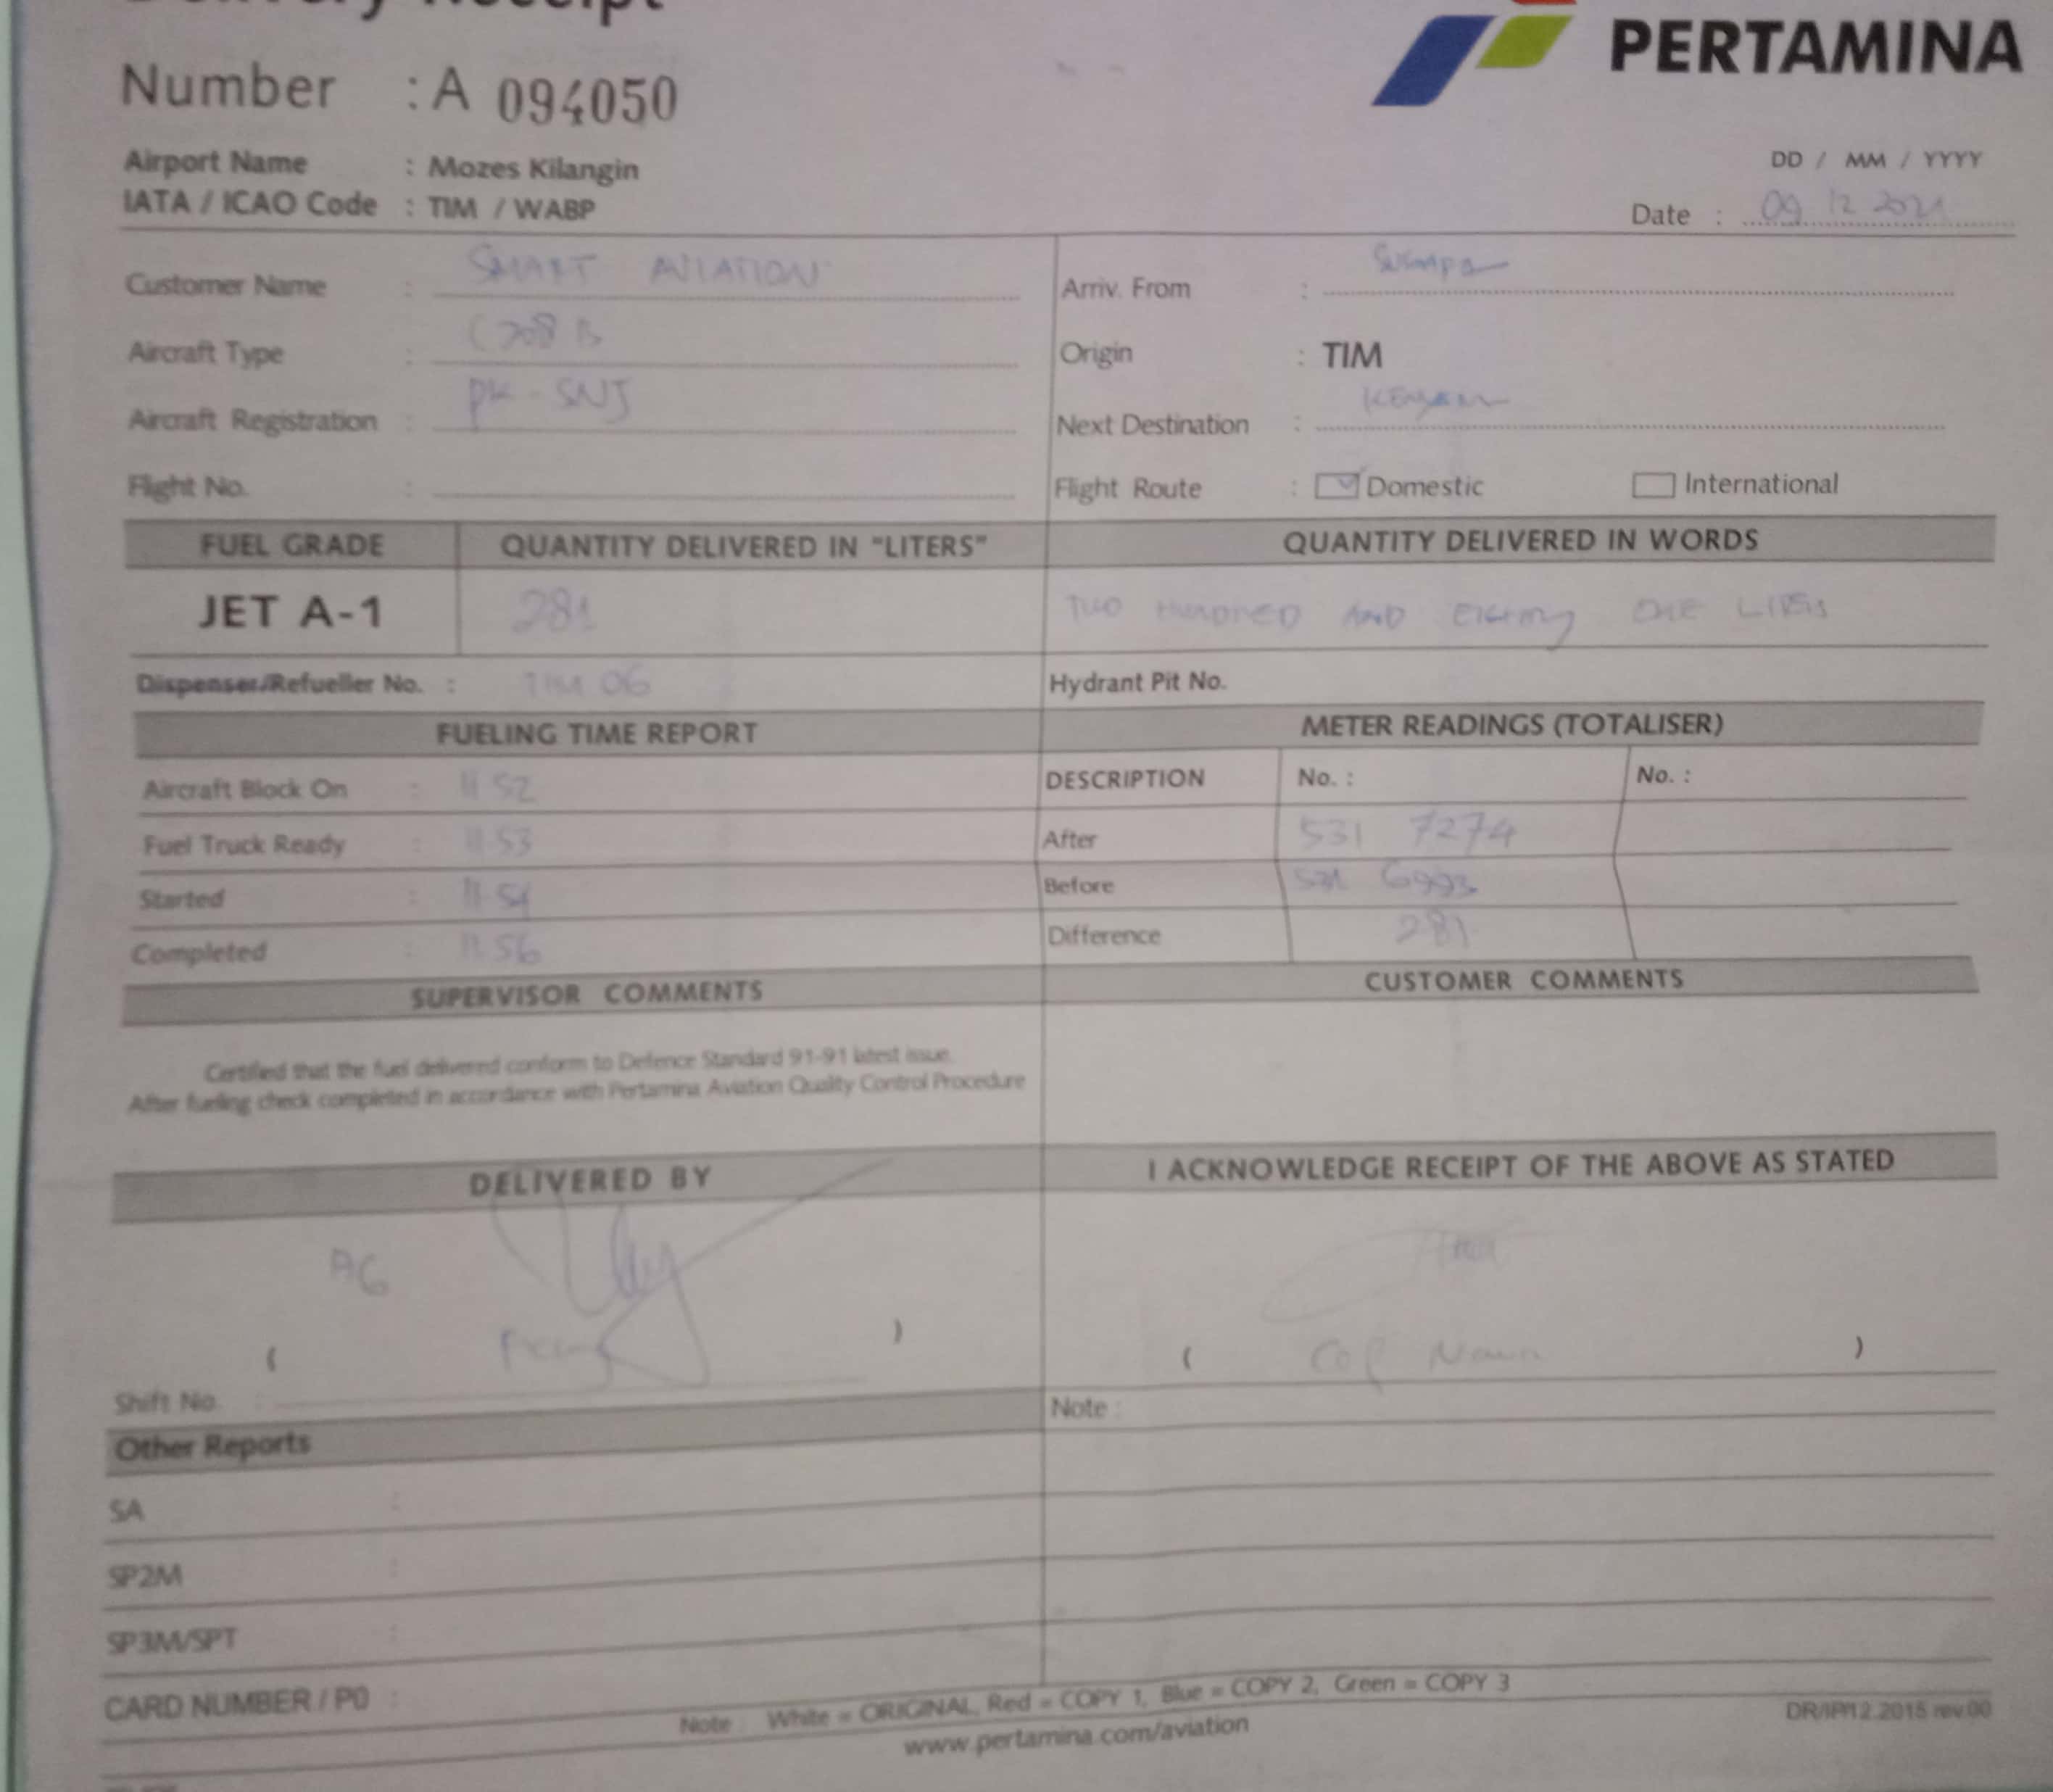 Delivery Receipt
PERTAMINA
Number : A 094050
Airport Name : Mozes Kilangin
IATA / ICAO Code : TIM / WABP
DD / MM / YYYY
Date : 09 12 2021
Customer Name : SMART AVIATION
Arriv. From :
Aircraft Type : C208 B
Origin : TIM
Aircraft Registration : PK-SNJ
Next Destination :
Flight No. :
Flight Route : Domestic International
FUEL GRADE QUANTITY DELIVERED IN "LITERS" QUANTITY DELIVERED IN WORDS
JET A-1 281 TWO HUNDRED AND EIGHTY ONE
Dispenser/Refueller No. : TIM 06 Hydrant Pit No.
FUELING TIME REPORT METER READINGS (TOTALISER)
Aircraft Block On : 11 52 DESCRIPTION No. : No. :
Fuel Truck Ready : 11 53 After 531 7274
Started : 11 54 Before 531 6993
Completed : 11.56 Difference 281
SUPERVISOR COMMENTS CUSTOMER COMMENTS
Certified that the fuel delivered conform to Defence Standard 91-91 latest issue.
After fueling check completed in accordance with Pertamina Aviation Quality Control Procedure
DELIVERED BY I ACKNOWLEDGE RECEIPT OF THE ABOVE AS STATED
( ) ( )
Shift No. : Note :
Other Reports
SA :
SP2M :
SP3M/SPT :
CARD NUMBER / PO :
Note : White = ORIGINAL, Red = COPY 1, Blue = COPY 2, Green = COPY 3
www.pertamina.com/aviation
DR/IP/12.2015 rev.00